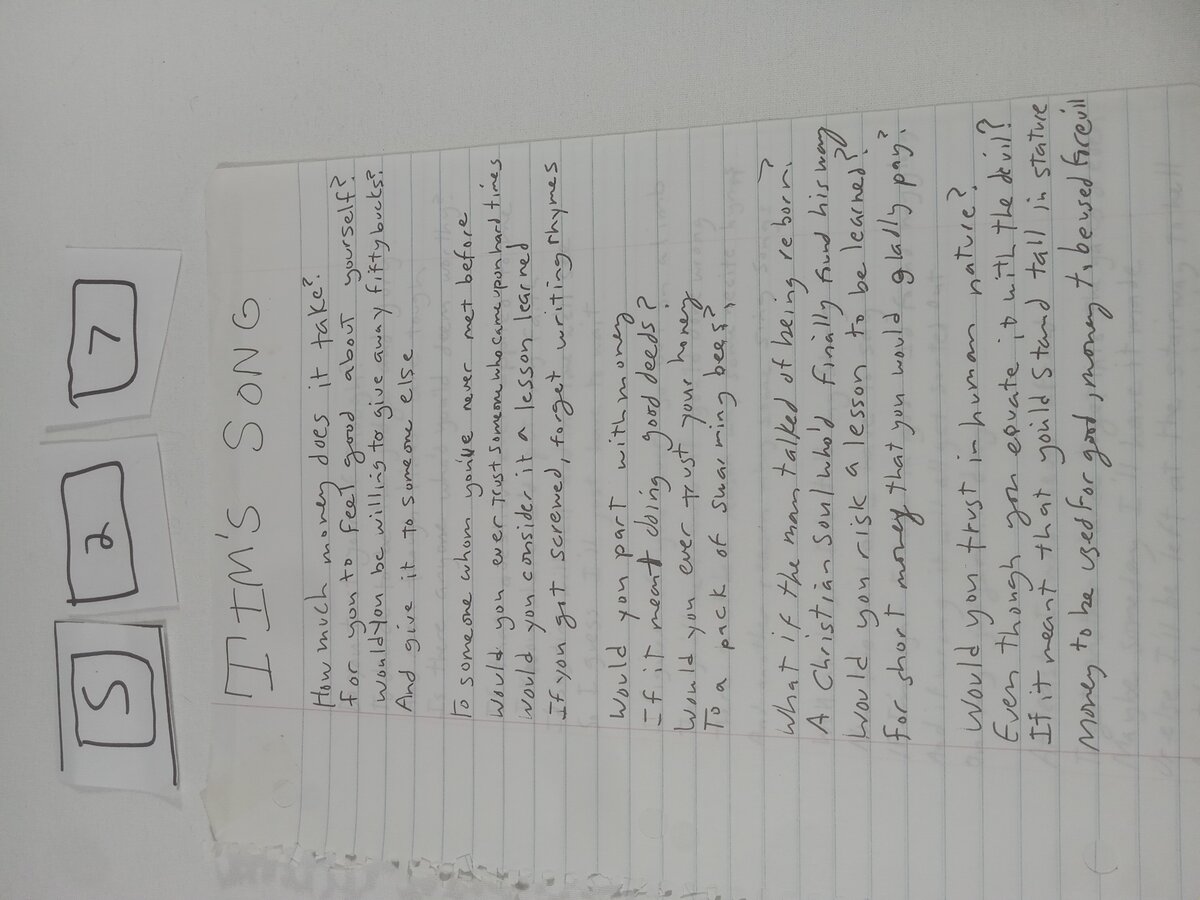 5 2 7
TIM'S SONG
How much money does it take?
For you to feel good about yourself?
Would you be willing to give away fifty bucks?
And give it to someone else
To someone whom you've never met before
Would you ever trust someone who came upon hard times
Would you consider it a lesson learned
If you got screwed, forget writing rhymes
Would you part with money
If it meant doing good deeds?
Would you ever trust your honey
To a pack of swarming bees?
What if the man talked of being reborn?
A Christian soul who'd finally found his way
Would you risk a lesson to be learned?
For short money that you would gladly pay?
Would you trust in human nature?
Even though you equate it with the devil?
If it meant that you'd stand tall in stature
Money to be used for good, money to be used for evil